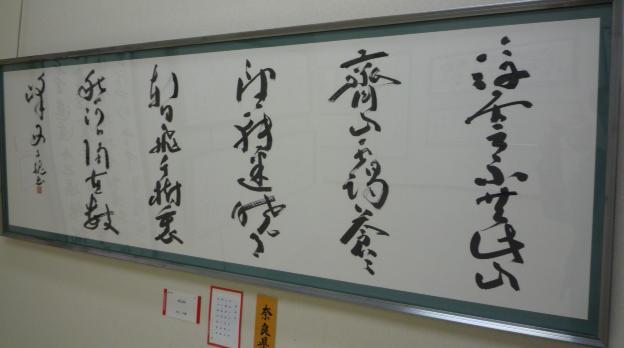 浮雲不共此山
齊山靄蒼〻
望轉迷曉月
暫飛千樹裏
秋河隔在數
峰西
奈良県